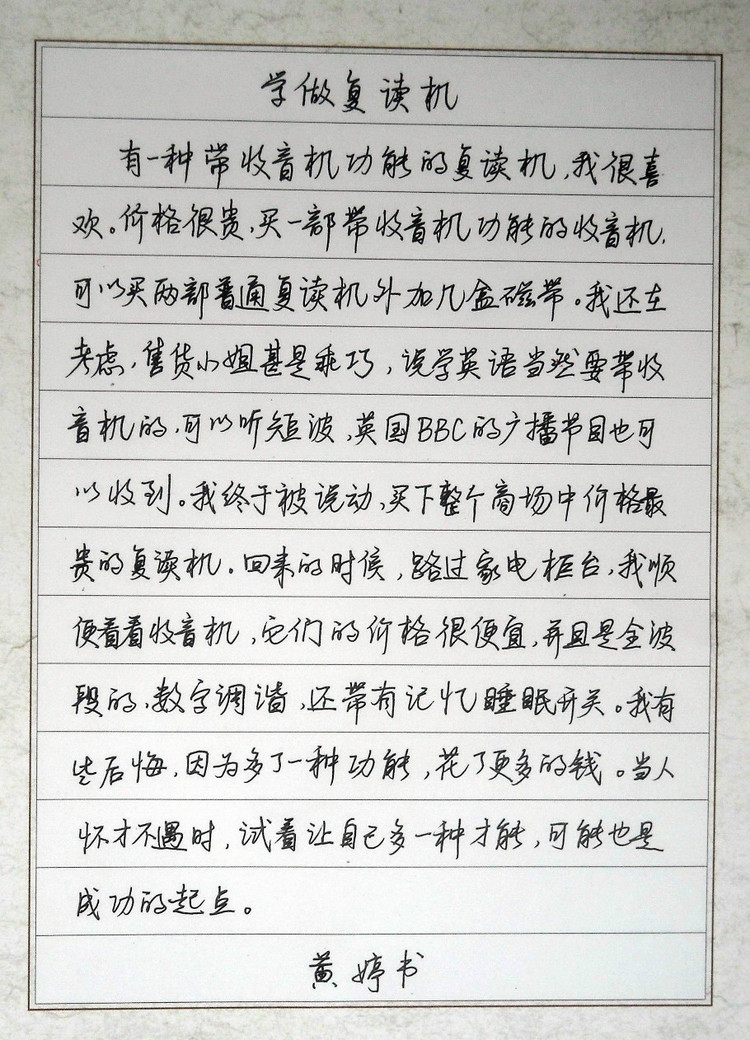 学做复读机
有一种带收音机功能的复读机,我很喜
欢。价格很贵,买一部带收音机功能的收音机,
可以买两部普通复读机外加几盒磁带。我还在
考虑,售货小姐甚是乖巧,说学英语当然要带收
音机的,可以听短波,英国BBC的广播节目也可
以收到。我终于被说动,买下整个商场中价格最
贵的复读机。回来的时候,路过家电柜台,我顺
便看看收音机,它们的价格很便宜,并且是全波
段的,数字调谐,还带有记忆睡眠开关。我有
些后悔,因为多了一种功能,花了更多的钱。当人
怀才不遇时,试着让自己多一种才能,可能也是
成功的起点。
黄婷书